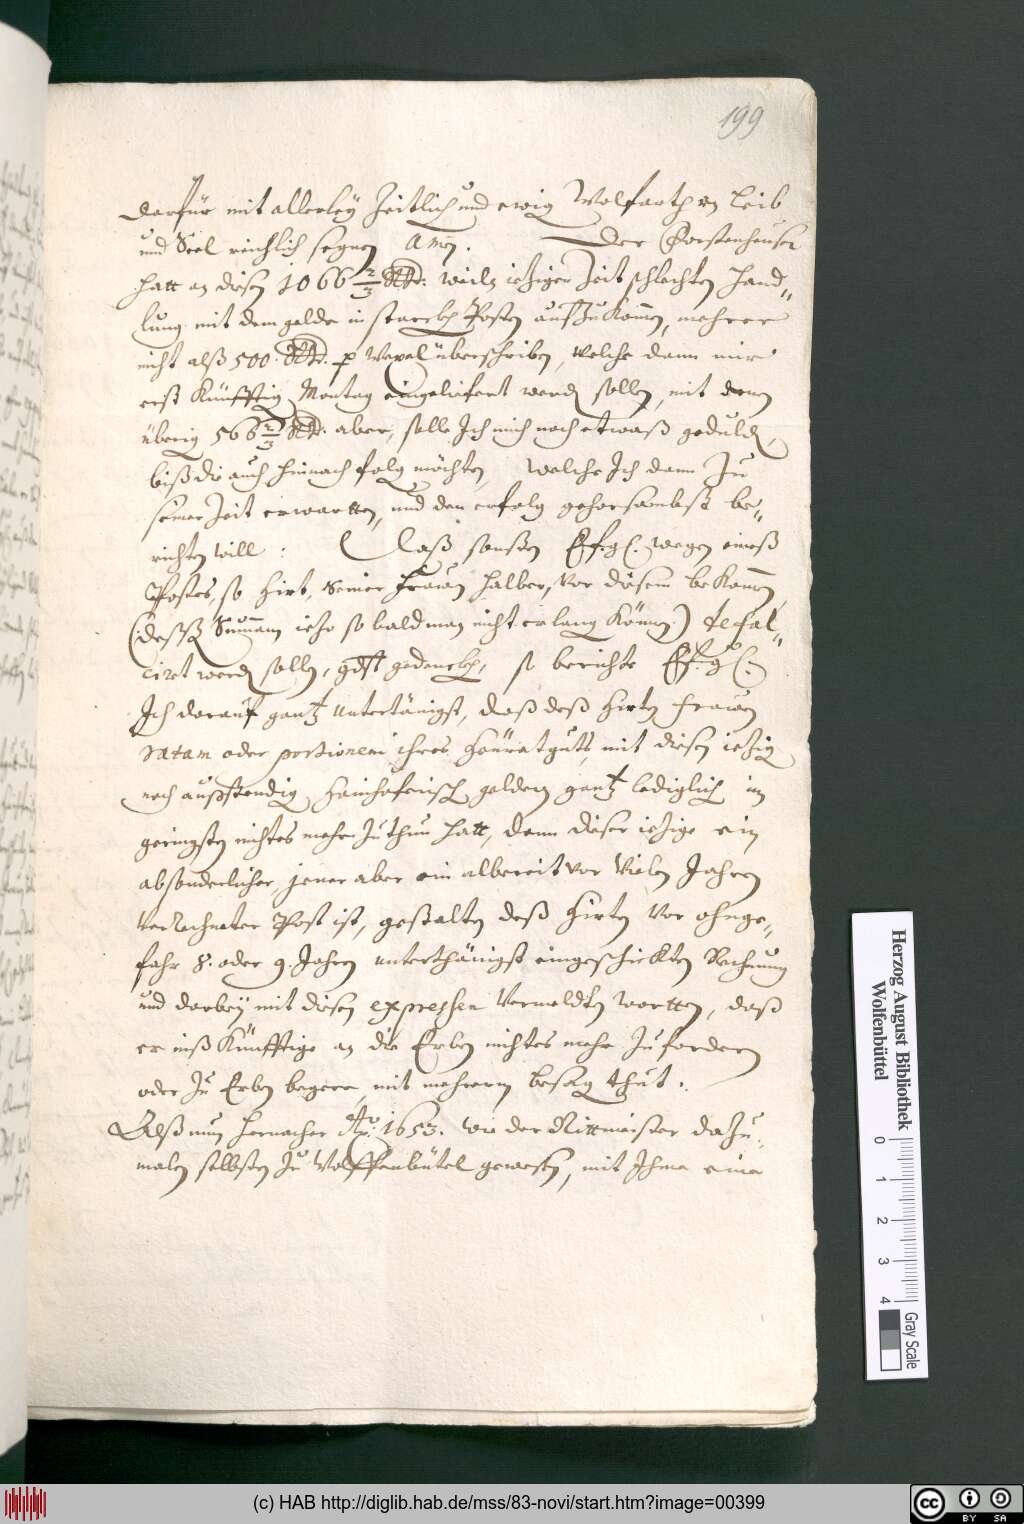 199
darfür mit allerley Zeitlich und ewig Wolfarth an Leib
und Seel reichlich segnen Amen. Der Gorstenheuser
hatt an disen 1066 2/3 Rthr: weiln ieziger Zeit schlechten Hand-
lung mit dem gelde in starckhen Posten aufzukommen, mehrer
nicht alß 500. Rthr. p Wexel überschriben, welche dann mir
erst Künfftig Montag eingeliefert werden sollen, mit denen
überig 566 2/3 Rthr. aber, solle Ich mich noch etwaß gedulden,
biß die auch hinnach folgen möchten, welche Ich dann zu
seiner Zeit erwartten, und den erfolg gehorsambst be-
richten will: Daß sonsten E. f. g. wegen eineß
Postes, so Hirt, seiner Frawen halber, vor disem bekommen,
(: dessß Summam iezo so bald man nicht erlangen Können:) defal-
cirt werden sollen, gdst gedenckhen, so berichte E. f. g.
Ich darauf gantz untertänigst, daß deß Hirten Frawen
ratam oder portionem ihres Heüratguts, mit disen iezig
noch außstendig Hainhoferisch geldern gantz lediglich im
geringsten nichtes mehr zuthun hatt, dann diser iezige ein
absonderlicher, jener aber ein albereit vor Vielen Jahren
verrechneter Post ist, gestalten deß Hirten vor ohnge-
fahr 8. oder 9. Jahren unterthänigst eingeschickten Rechnung
und darbey mit disen expressen vermeldten wortten, daß
er inß Künfftige an die Erben nichtes mehr zufordern
oder zu Erben begere, mit mehrerm besag thut.
Alß nun hernacher Ao: 1653. wie der Rittmeister dazu-
malen selbsten zu Wolffenbütel gewesen, mit Ihme eine
Herzog August Bibliothek
Wolfenbüttel
0 1 2 3 4
Gray Scale
(c) HAB http://diglib.hab.de/mss/83-novi/start.htm?image=00399
cc BY SA